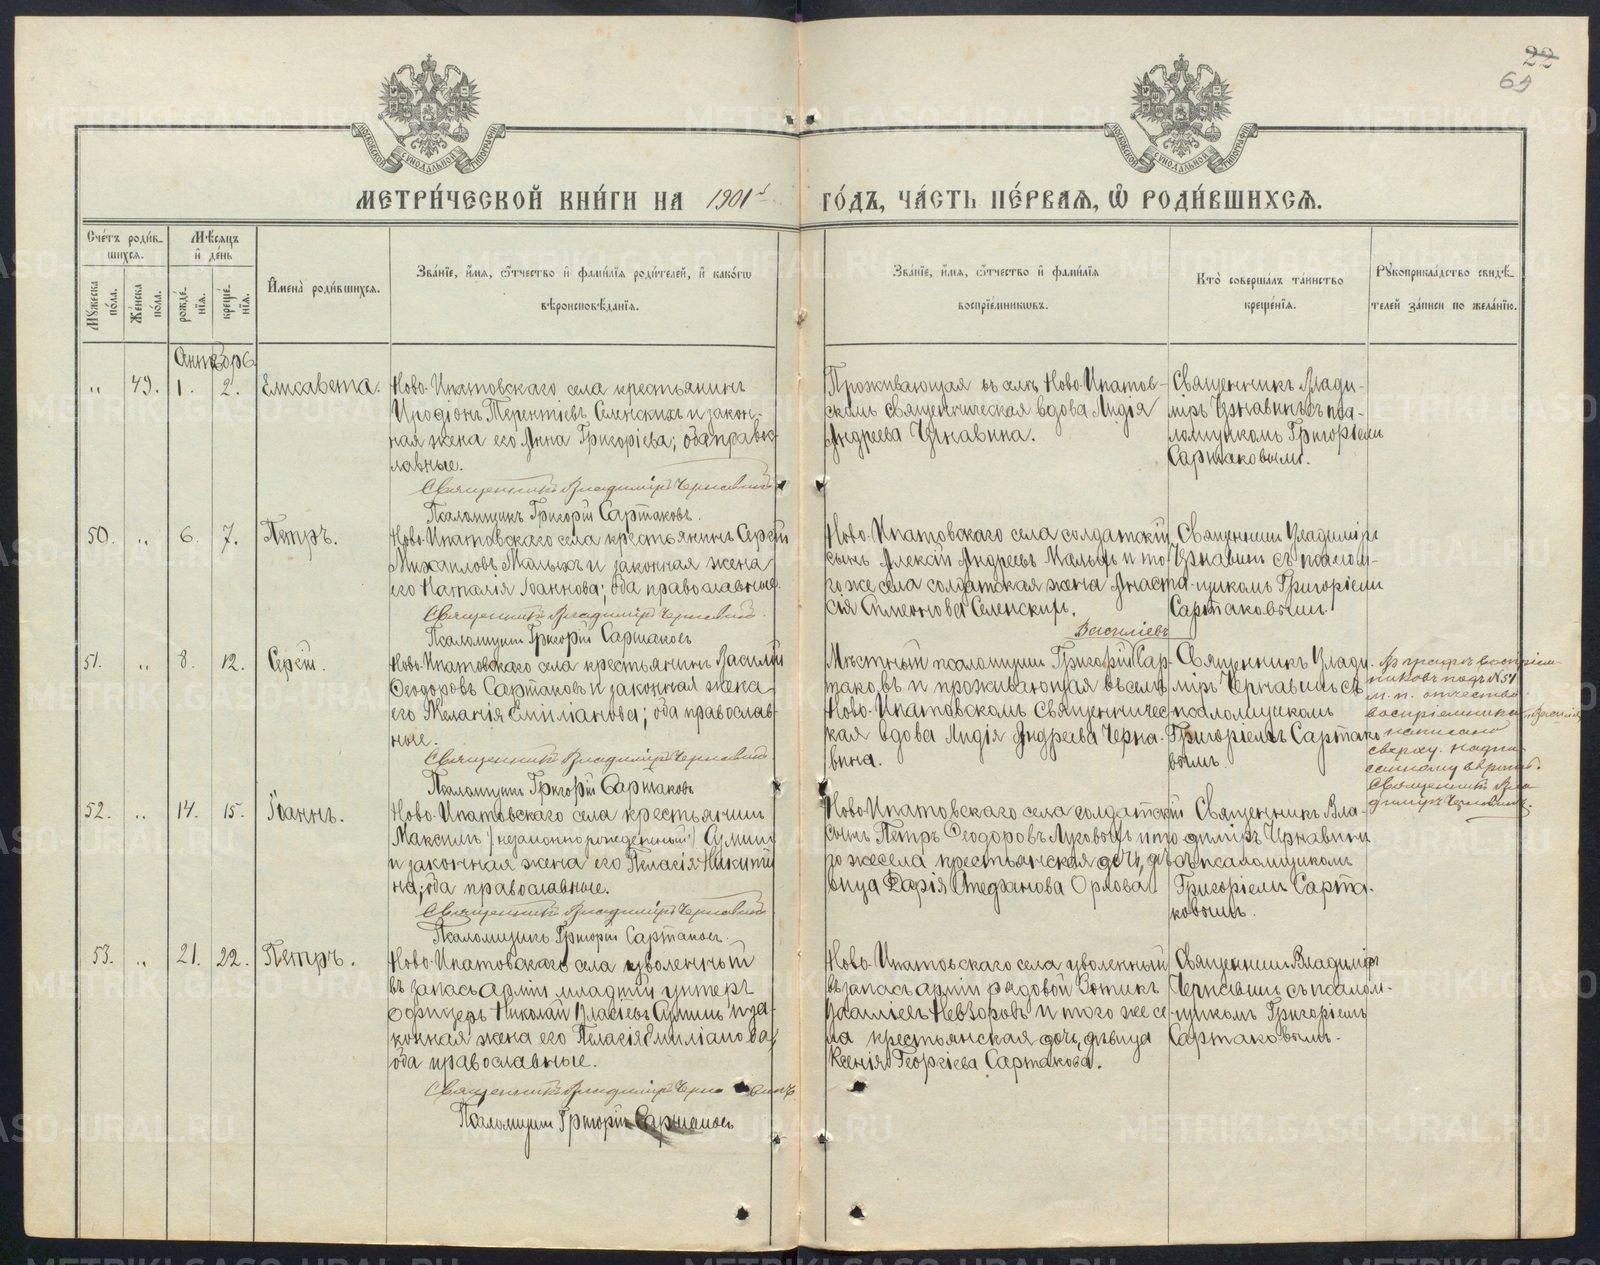 22
69
МЕТРИ́ЧЕСКОЙ КНИ́ГИ НА 1901 й ГО́ДЪ, ЧА́СТЬ ПЕ́РВАЯ, Ѡ҆ РОДИ́ВШИХСЯ.
Счетъ родившихся.
Мужеска пола.
Женска пола.
Мѣсяцъ и день
рожденія.
крещенія.
Имена родившихся.
Званіе, имя, отчество и фамилія родителей, и какогѡ
вѣроисповѣданія.
Званіе, имя, отчество и фамилія
воспріемникѡвъ.
Кто совершалъ таинство
крещенія.
Рукоприкладство свидѣтелей записи по желанію.
„ 49. 1. 2. Елисавета.
Ново-Ипатовскаго села крестьянинъ
Иродіонъ Терентіевъ Селенскихъ и закон-
ная жена его Анна Григоріева; оба право-
славные.
Священникъ Владиміръ Чернавинъ
Псаломщикъ Григорій Сартаковъ.
Проживающая въ селѣ Ново-Ипатов-
скомъ священническая вдова Лидія
Андреева Чернавина.
Священникъ Влади-
міръ Чернавинъ съ пса-
ломщикомъ Григоріемъ
Сартаковымъ.
50. „ 6. 7. Петръ.
Ново-Ипатовскаго села крестьянинъ Сергій
Михаиловъ Малыхъ и законная жена
его Наталія Іоаннова; оба православные.
Священникъ Владиміръ Чернавинъ.
Псаломщикъ Григорій Сартаковъ
Ново-Ипатовскаго села солдатскій
сынъ Алексій Андреевъ и то-
го же села солдатская жена Анаста-
сія Симеонова Селенскихъ.
Священникъ Владиміръ
Чернавинъ съ псалом-
щикомъ Григоріемъ
Сартаковымъ.
51. „ 8. 12. Сергій.
Ново-Ипатовскаго села крестьянинъ Василій
Ѳеодоровъ Сартаковъ и законная жена
его Меланія Емиліанова; оба православ-
ные.
Священникъ Владиміръ Чернавинъ
Псаломщикъ Григорій Сартаковъ
Василіевъ
Мѣстный псаломщикъ Григорій Сар-
таковъ и проживающая въ селѣ
Ново-Ипатовскомъ священничес-
кая вдова Лидія Андреева Черна-
вина.
Священникъ Влади-
міръ Чернавинъ съ
псаломщикомъ
Григоріемъ Сартако-
вымъ.
Въ графѣ воспріем-
никовъ подъ №51
м. п. отчество
воспріемника „Василіевъ“
написано
сверху.
Священникъ Вла-
диміръ Чернавинъ.
52. „ 14. 15. Іоаннъ.
Ново-Ипатовскаго села крестьянинъ
Максимъ (незаконнорожденный) Суминъ
и законная жена его Пелагія Никити-
на; оба православные.
Священникъ Владиміръ Чернавинъ
Псаломщикъ Григорій Сартаковъ.
Ново-Ипатовскаго села солдатскій
сынъ Петръ Ѳеодоровъ Луговыхъ и то-
го же села крестьянская дочь, дѣ-
вица Дарія Стефанова Орлова.
Священникъ Вла-
диміръ Чернавинъ
съ псаломщикомъ
Григоріемъ Сарта-
ковымъ.
53. „ 21. 22. Петръ.
Ново-Ипатовскаго села уволенный
въ запасъ арміи младшій унтеръ
офицеръ Николай Власіевъ Суминъ и за-
конная жена его Пелагія Емиліанова,
оба православные.
Священникъ Владиміръ Чернавинъ
Псаломщикъ Григорій Сартаковъ
Ново-Ипатовскаго села уволенный
въ запасъ арміи рядовой Зотикъ
Невзоровъ и того же се-
ла крестьянская дочь, дѣвица
Ксенія Георгіева Сартакова.
Священникъ Владиміръ
Чернавинъ съ псалом-
щикомъ Григоріемъ
Сартаковымъ.
METRIKI.GASO-URAL.RU